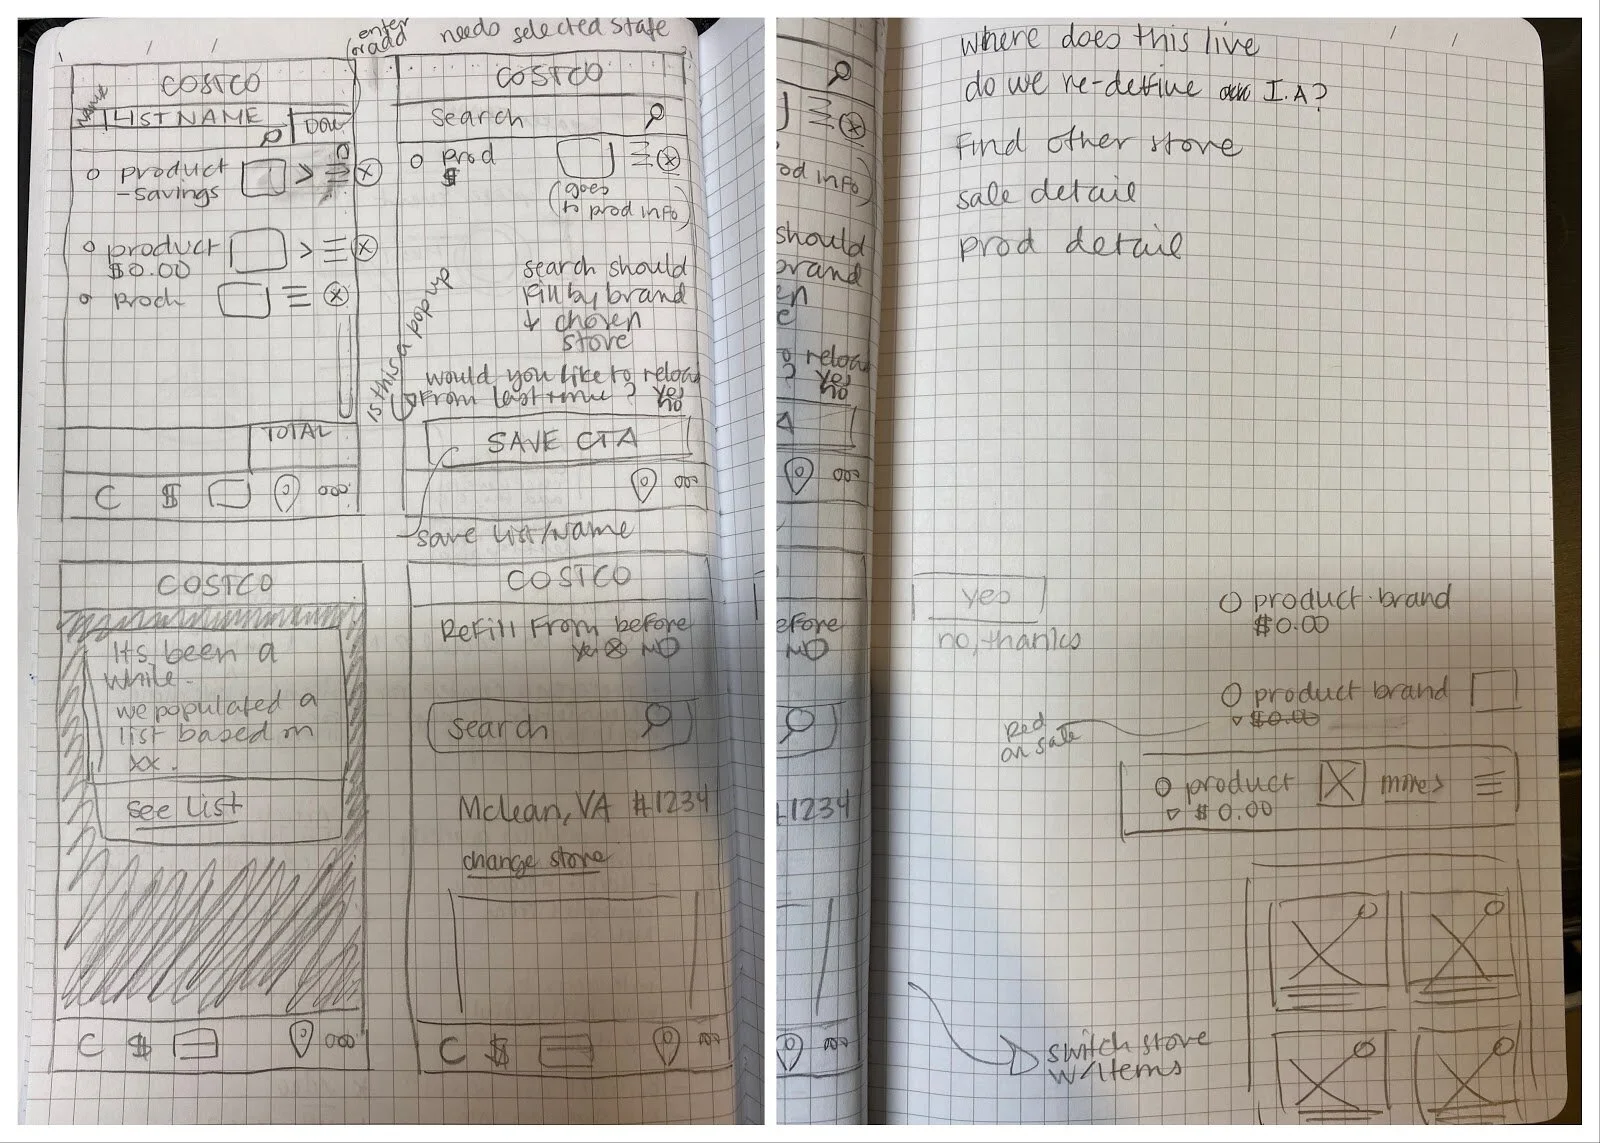 enter
or add
needs selected state
COSTCO
name
LIST NAME
product
-savings
product
$0.00
TOTAL
C $
COSTCO
search
prod
$
(goes
to prod info)
search should
fill by brand
+ chosen
store
is this a pop up
would you like to reload
from last time? yes
no
SAVE CTA
save list/name
COSTCO
Its been a
while.
we populated a
list based on
xx.
see list
C $
COSTCO
Refill from before
yes no
search
Mclean, VA #1234
change store
C $
where does this live
do we re-define I.A?
Find other store
sale detail
prod detail
od info)
should
brand
en
e
o reload
? yes
no
A
efore
no
1234
yes
no, thanks
product brand
$0.00
product brand
$0.00
Red
on sale
product
$0.00
switch store
w/items